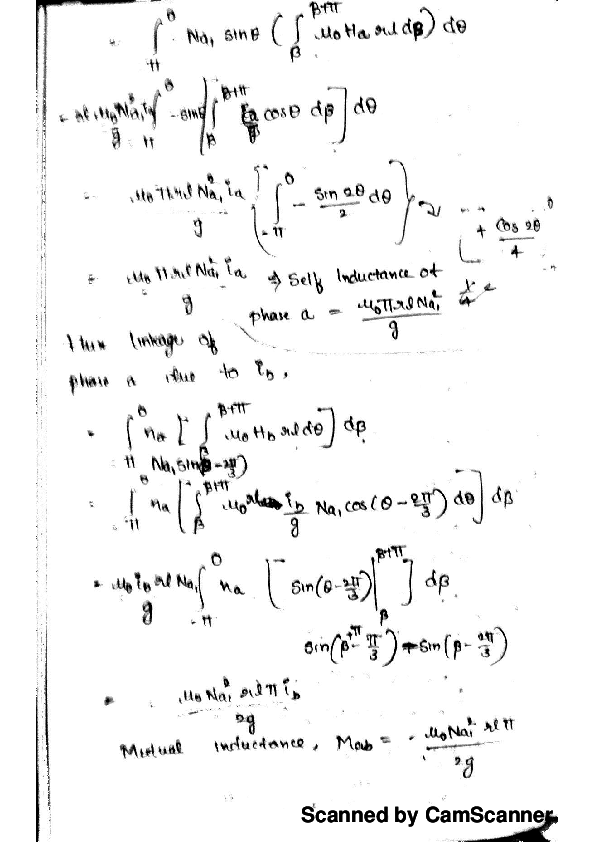 = ∫_π^0 Na₁ sinθ ( ∫_β^{β+π} μ₀ Ha rl dβ ) dθ
= rl μ₀ Na₁² ia / g ∫_π^0 - sinθ [ ∫_β^{β+π} cosθ dβ ] dθ
= μ₀ π rl Na₁² ia / g { ∫_{-π}^0 - sin 2θ / 2 dθ } + cos 2θ / 4
= μ₀ π rl Na₁² ia / g ⇒ Self Inductance of
phase a = μ₀ π rl Na₁² / g
Flux linkage of
phase a due to i_b,
= ∫_π^0 na [ ∫_β^{β+π} μ₀ H_b rl dθ ] dβ
Na₁ sin(β - 2π/3)
= ∫_{-π}^0 na [ ∫_β^{β+π} μ₀ i_b / g Na₁ cos(θ - 2π/3) dθ ] dβ
= μ₀ i_b rl Na₁ / g ∫_{-π}^0 na [ sin(θ - 2π/3) |_β^{β+π} ] dβ
sin(β + π - π/3) - sin(β - 2π/3)
= μ₀ Na₁² rl π i_b / 2g
Mutual inductance, Mab = - μ₀ Na₁² rl π / 2g
Scanned by CamScanner